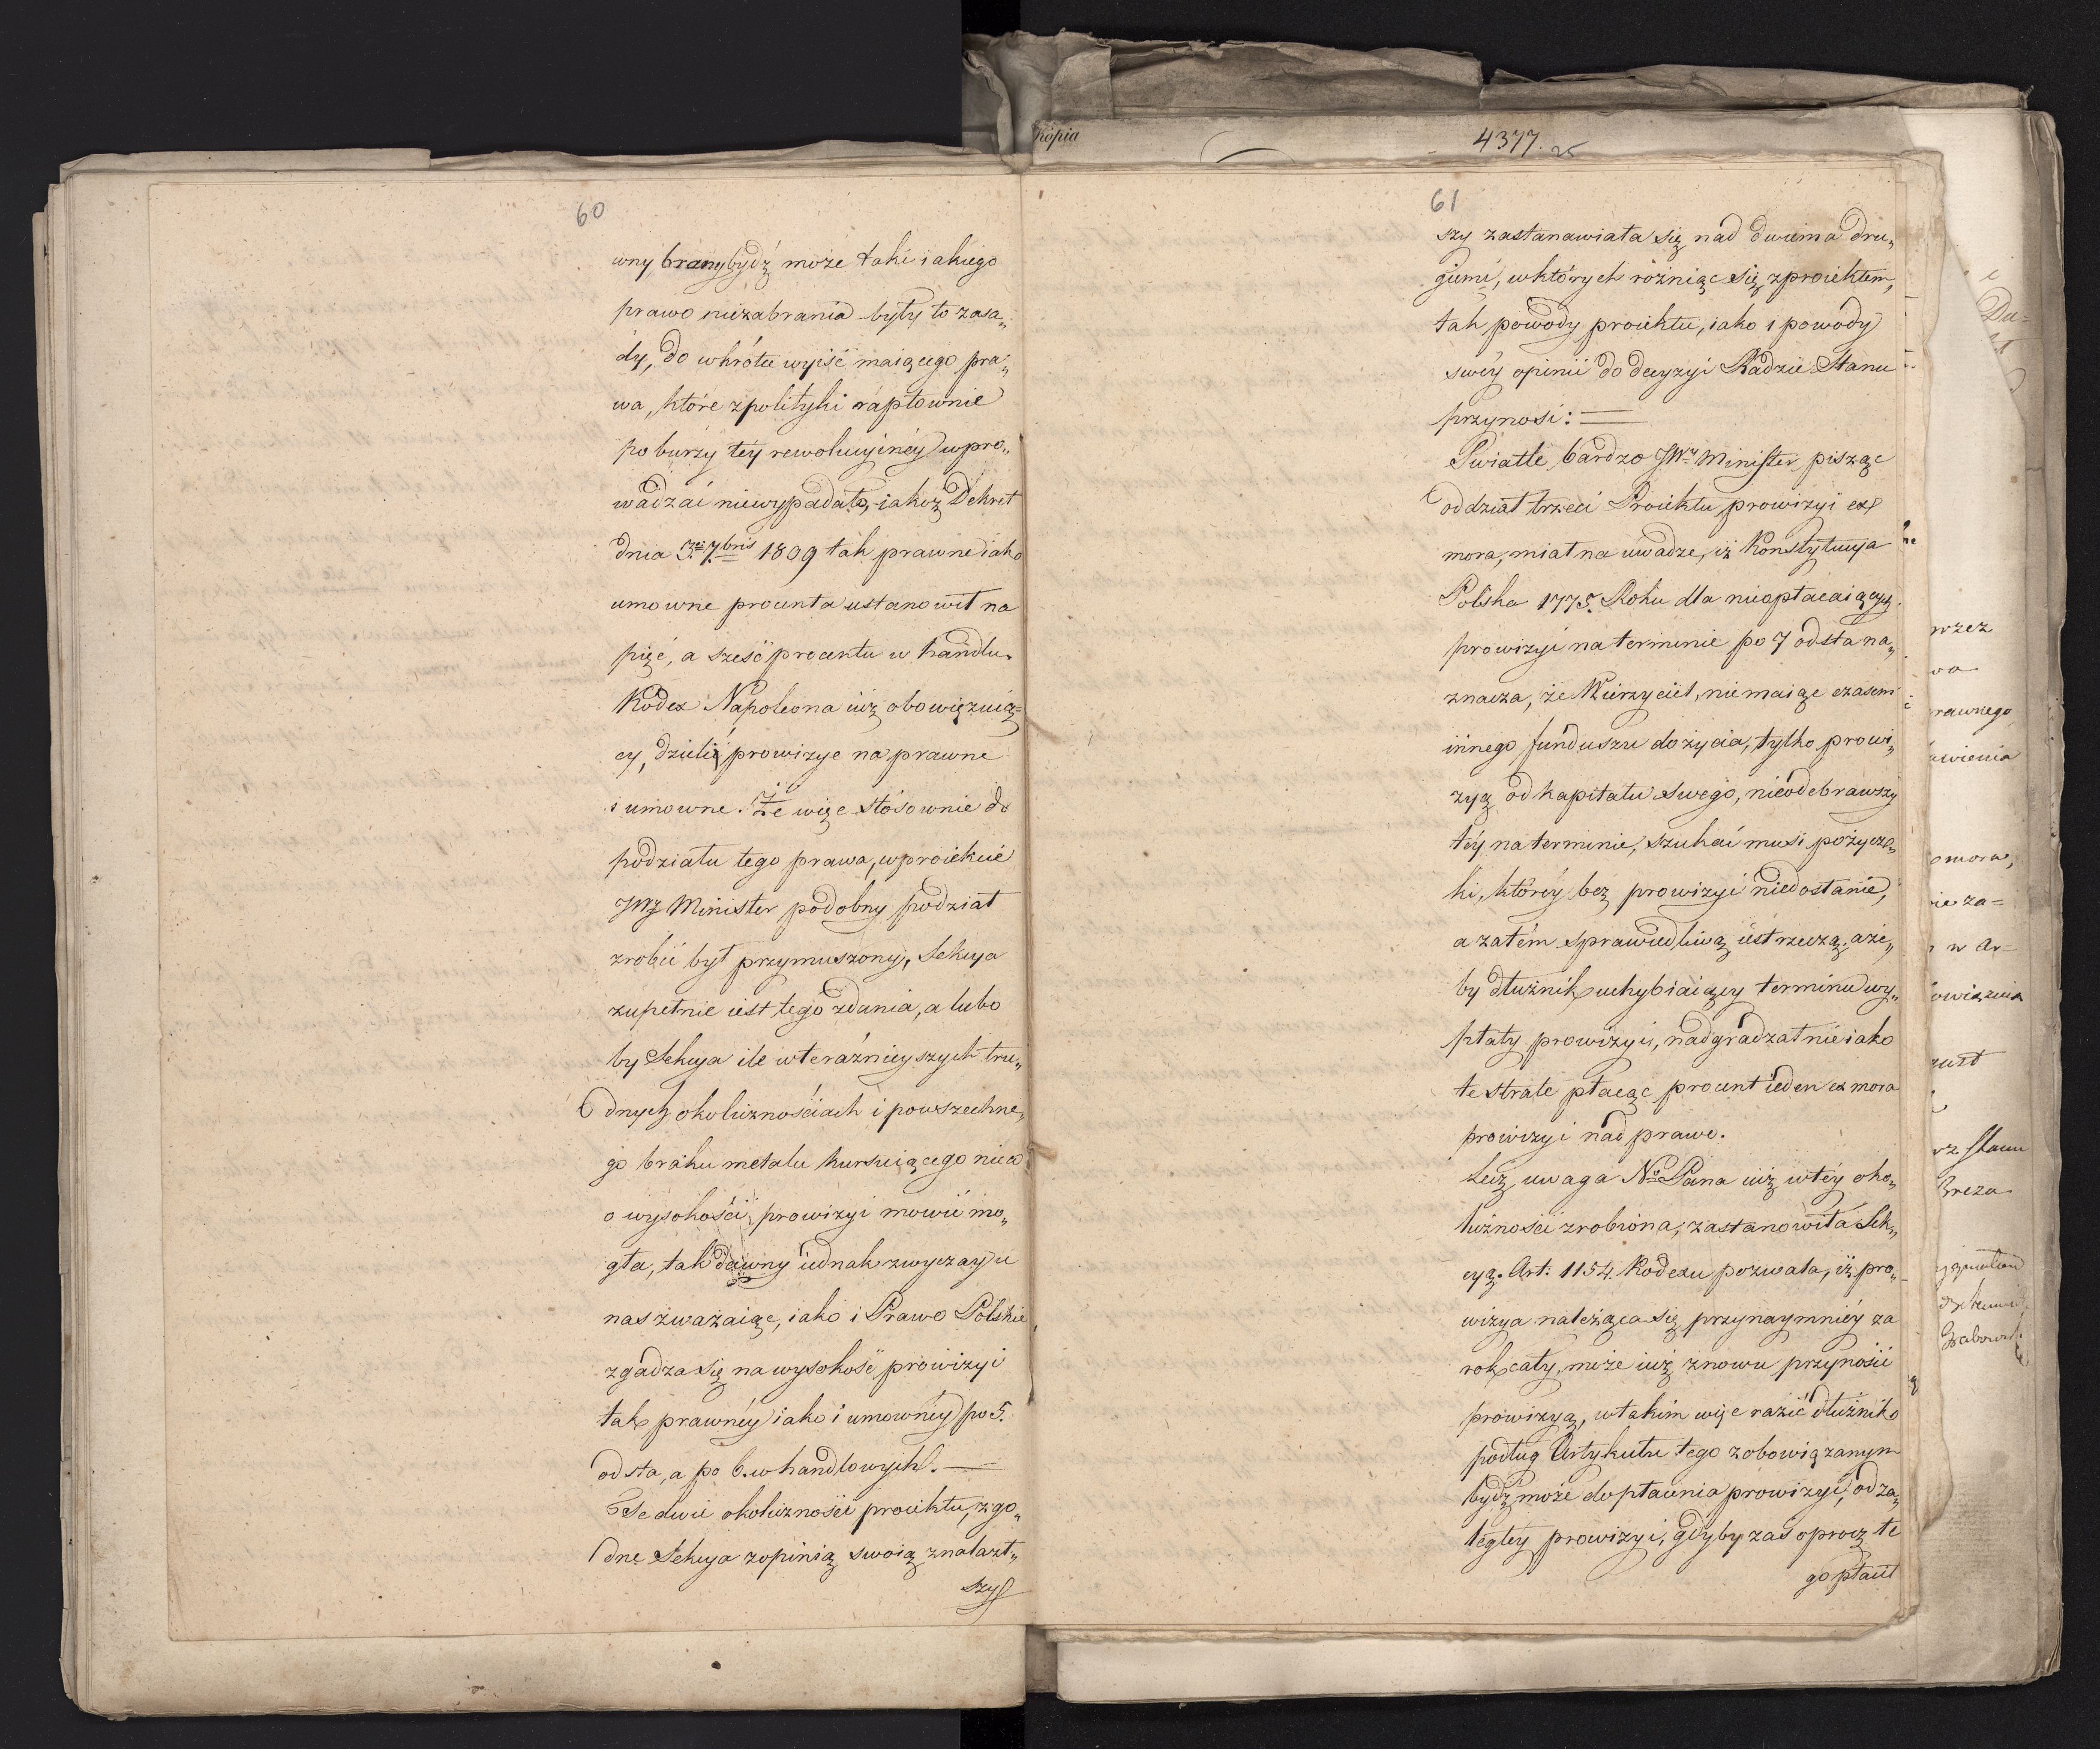 60
wny, brany bydź może taki iakiego
prawo niezabrania były to zasa„
dy, do wkrótce wyiść maiącego pra„
wa, które z polityki raptownie
po burzy téy rewolucyinéy wpro„
wadzać niewypadało, iakoż Dekret
dnia 3. 7bris 1809 tak prawne iako
umowne procenta ustanowił na
pięć, a sześć procentu w handlu.
Kodex Napoleona iuż obowięzuią=
cy, dzieli prowizye na prawne
i umowne. Że więc stósownie do
podziału tego prawa, w proiekcie
JWy Minister podobny podział
zrobić był przymuszony, Sekcya
zupełnie iest tego zdania, a lubo
by Sekcya ile w teraźnieyszych tru„
dnych okolicznościach i powszechne„
go braku metalu kursuiącego nieco
o wysokości prowizyi mowić mo„
gła, tak dawny iednak zwyczay u
nas zważaiąc, iako i Prawo Polskie
zgadza się na wysokość prowizyi
tak prawnéy iako i umownéy po 5.
od sta, a po 6. w handlowych. —
Te dwie okoliczności proiektu, zgo„
dne Sekcya z opinią swoią znalazł„
szy
Kópia
4377.
61
szy zastanawiała się nad dwiema dru„
giemi, w których różniąc się z proiektem,
tak powody proiektu, iako i powody
swéy opinii do decyzyi Radzie Stanu
przynosi: —
Światle bardzo JWy Minister pisząc
oddział trzeci Proiektu prowizyi ex
mora, miał na uwadze, iż Konstytucya
Polska 1775. Roku dla nieopłacaiących
prowizyi na terminie po 7 od sta na„
znacza, że Wierzyciel, nie maiąc czasem
innego funduszu do życia, tylko prowi„
zyą od kapitału swego, nieodebrawszy
téy na terminie, szukać musi pożycz„
ki, któréy bez prowizyi niedostanie,
a zatém sprawiedliwą iest rzeczą, aże„
by dłużnik uchybiaiący terminu wy„
płaty prowizyi, nadgradzał nieiako
te strate płacąc procent ieden ex mora
prowizyi nad prawo.
Lecz uwaga No Pana iuż w téy oko„
liczności zrobiona, zastanowiła Sek„
cyą. Art. 1154. Kodexu pozwala, iż pro„
wizya należąca się przynaymniéy za
rok cały, może iuż znowu przynosić
prowizyą, w takim więc razie dłużnik
podług Artykułu tego zobowiązanym
bydź może do płacenia prowizyi, od za„
ległey prowizyi, gdyby zaś oprocz te
go płacił
rawnego
omora,
ie za=
w Ar=
Breza